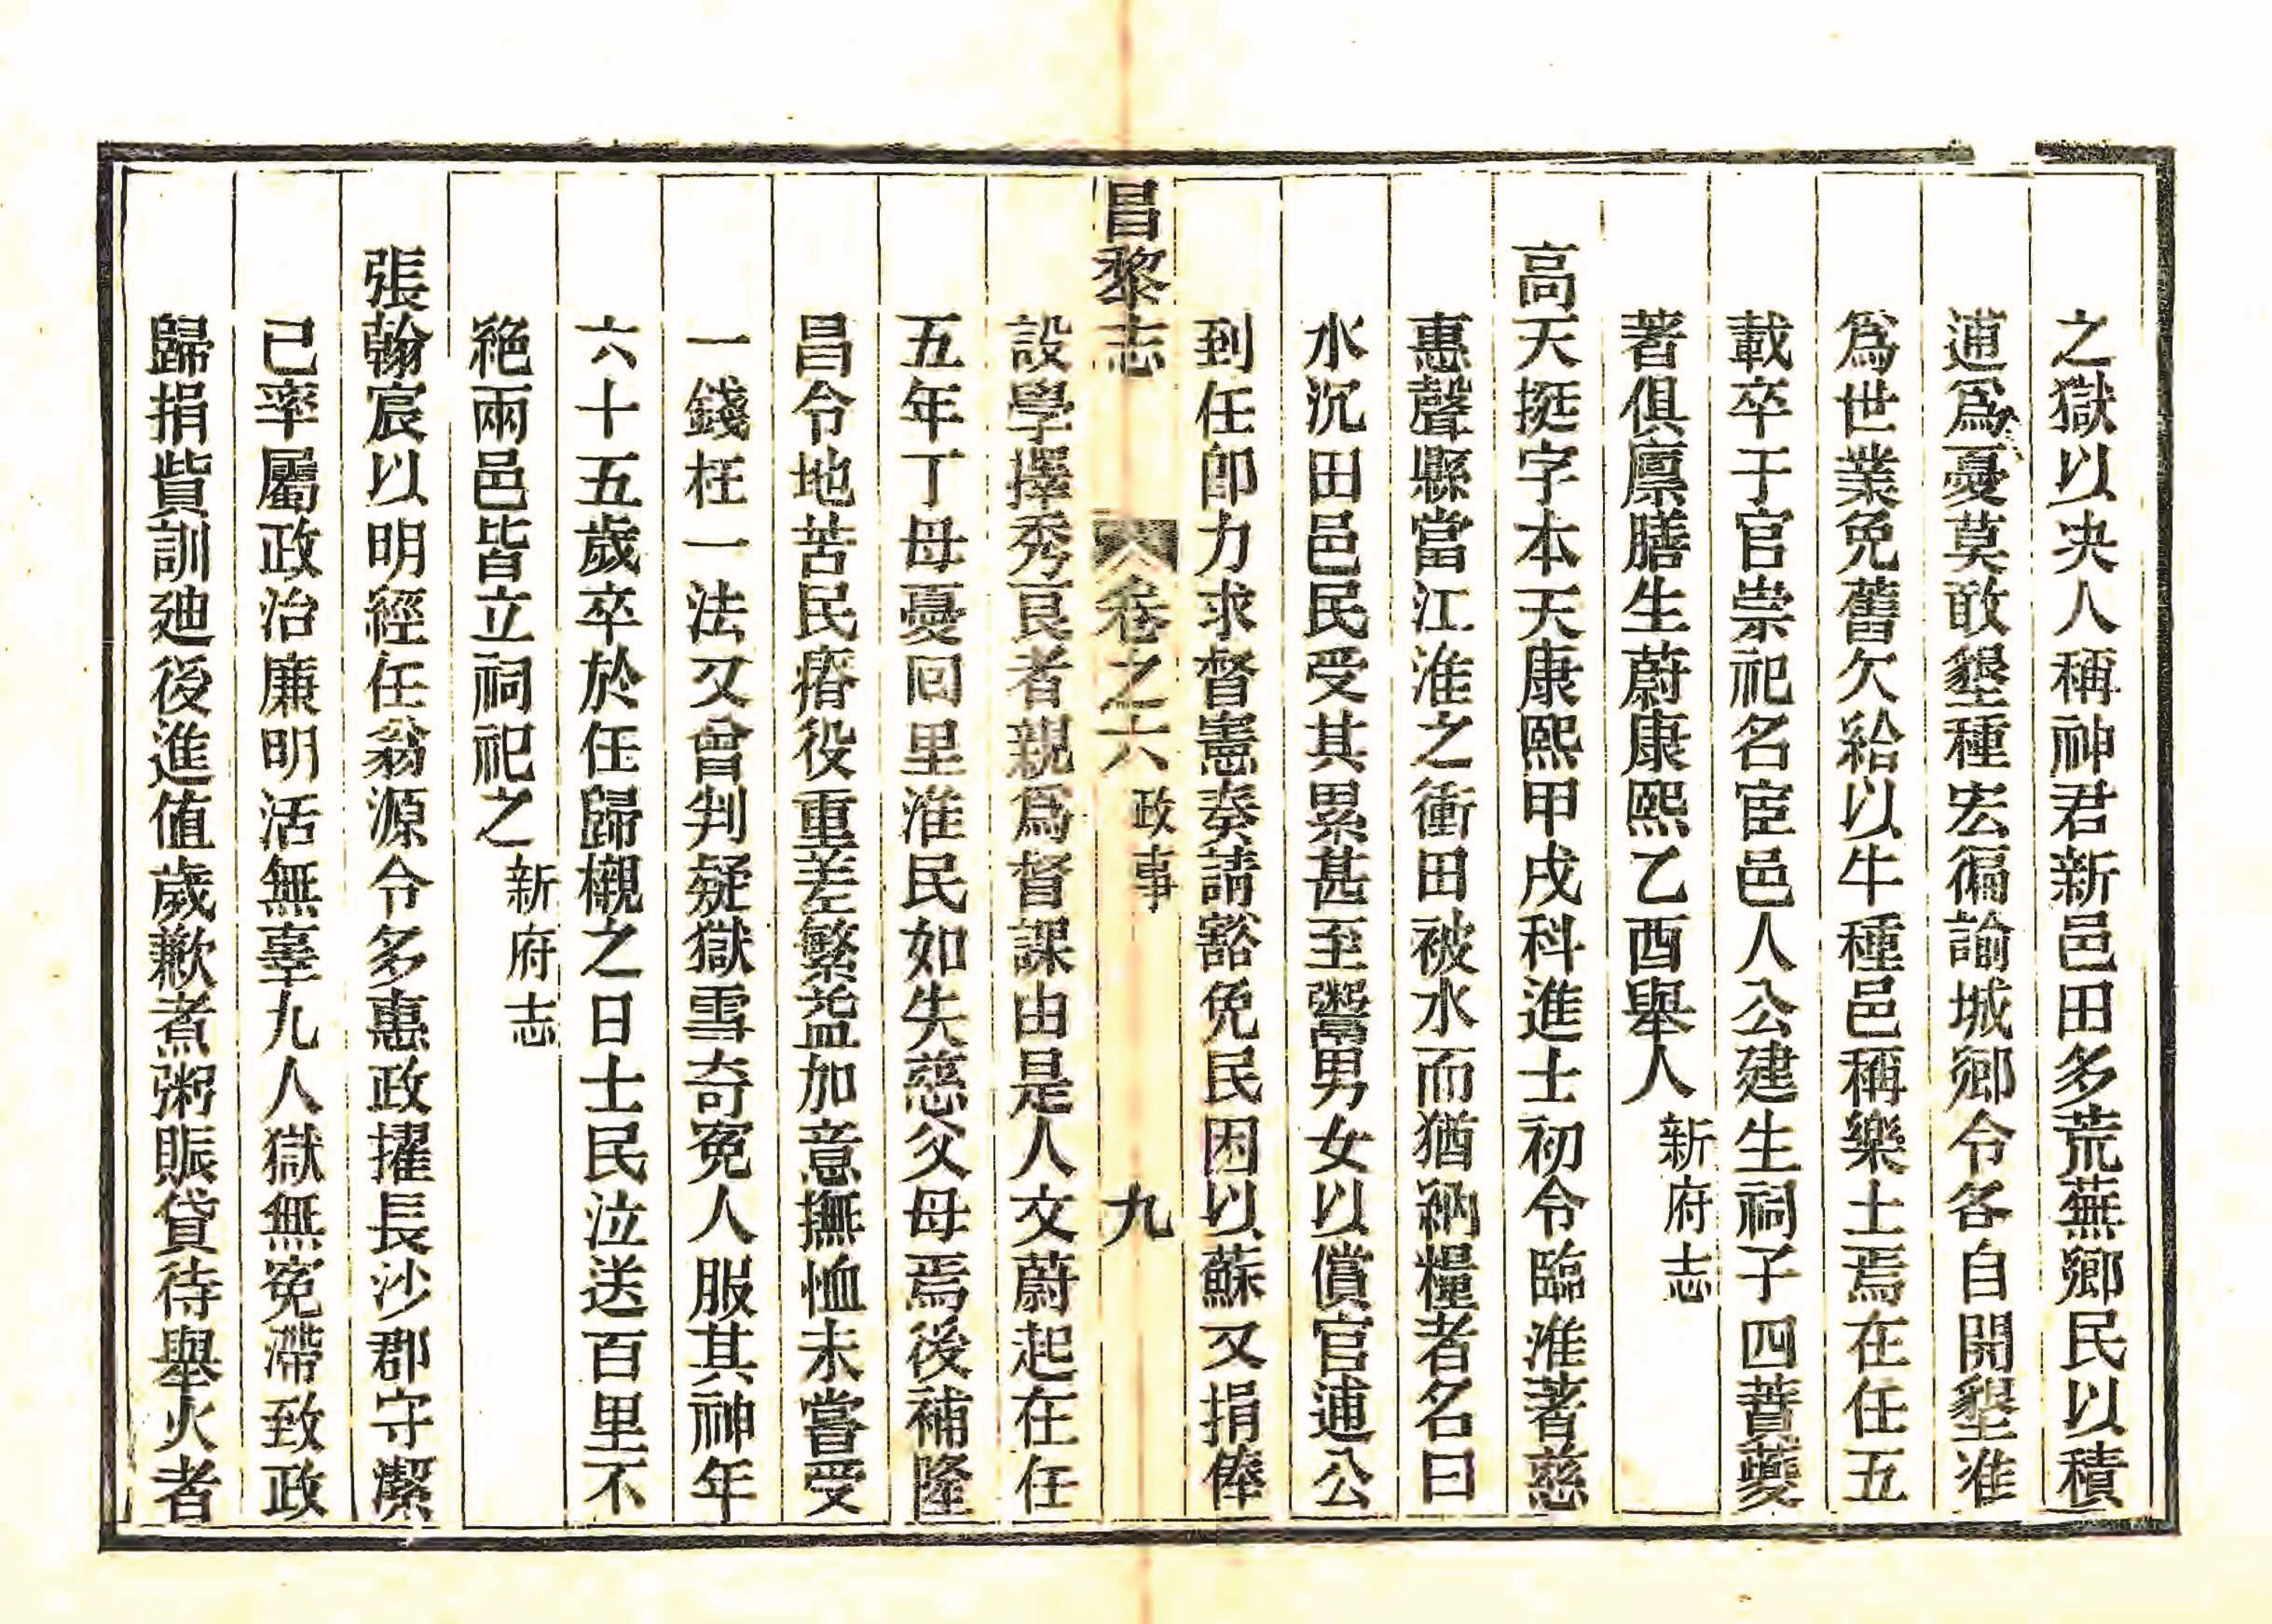 之獄以决人稱神君新邑田多荒蕪鄉民以積
逋爲憂莫敢墾種宏徧諭城鄉令各自開墾准
爲世業免舊欠給以牛種邑稱樂土焉在任五
載卒于官崇祀名宦邑人公建生祠子四蕡夔
著俱廪膳生蔚康熙乙酉舉人新府志
高天挺字本天康熙甲戌科進士初令臨淮著慈
惠聲縣當江淮之衝田被水而猶納糧者名曰
水沉田邑民受其累甚至鬻男女以償官逋公
到任卽力求督憲奏請豁免民困以蘇又捐俸
昌黎志 卷之六 政事 九
設學擇秀良者親爲督課由是人文蔚起在任
五年丁母憂回里淮民如失慈父母焉後補隆
昌令地苦民瘠役重差繁益加意撫恤未嘗受
一錢枉一法又曾判疑獄雪奇寃人服其神年
六十五歲卒於任歸櫬之日士民泣送百里不
絶兩邑皆立祠祀之新府志
張翰宸以明經任翁源令多惠政擢長沙郡守潔
己率屬政治廉明活無辜九人獄無寃滯致政
歸捐貲訓廸後進値歲歉煮粥賑貸待舉火者